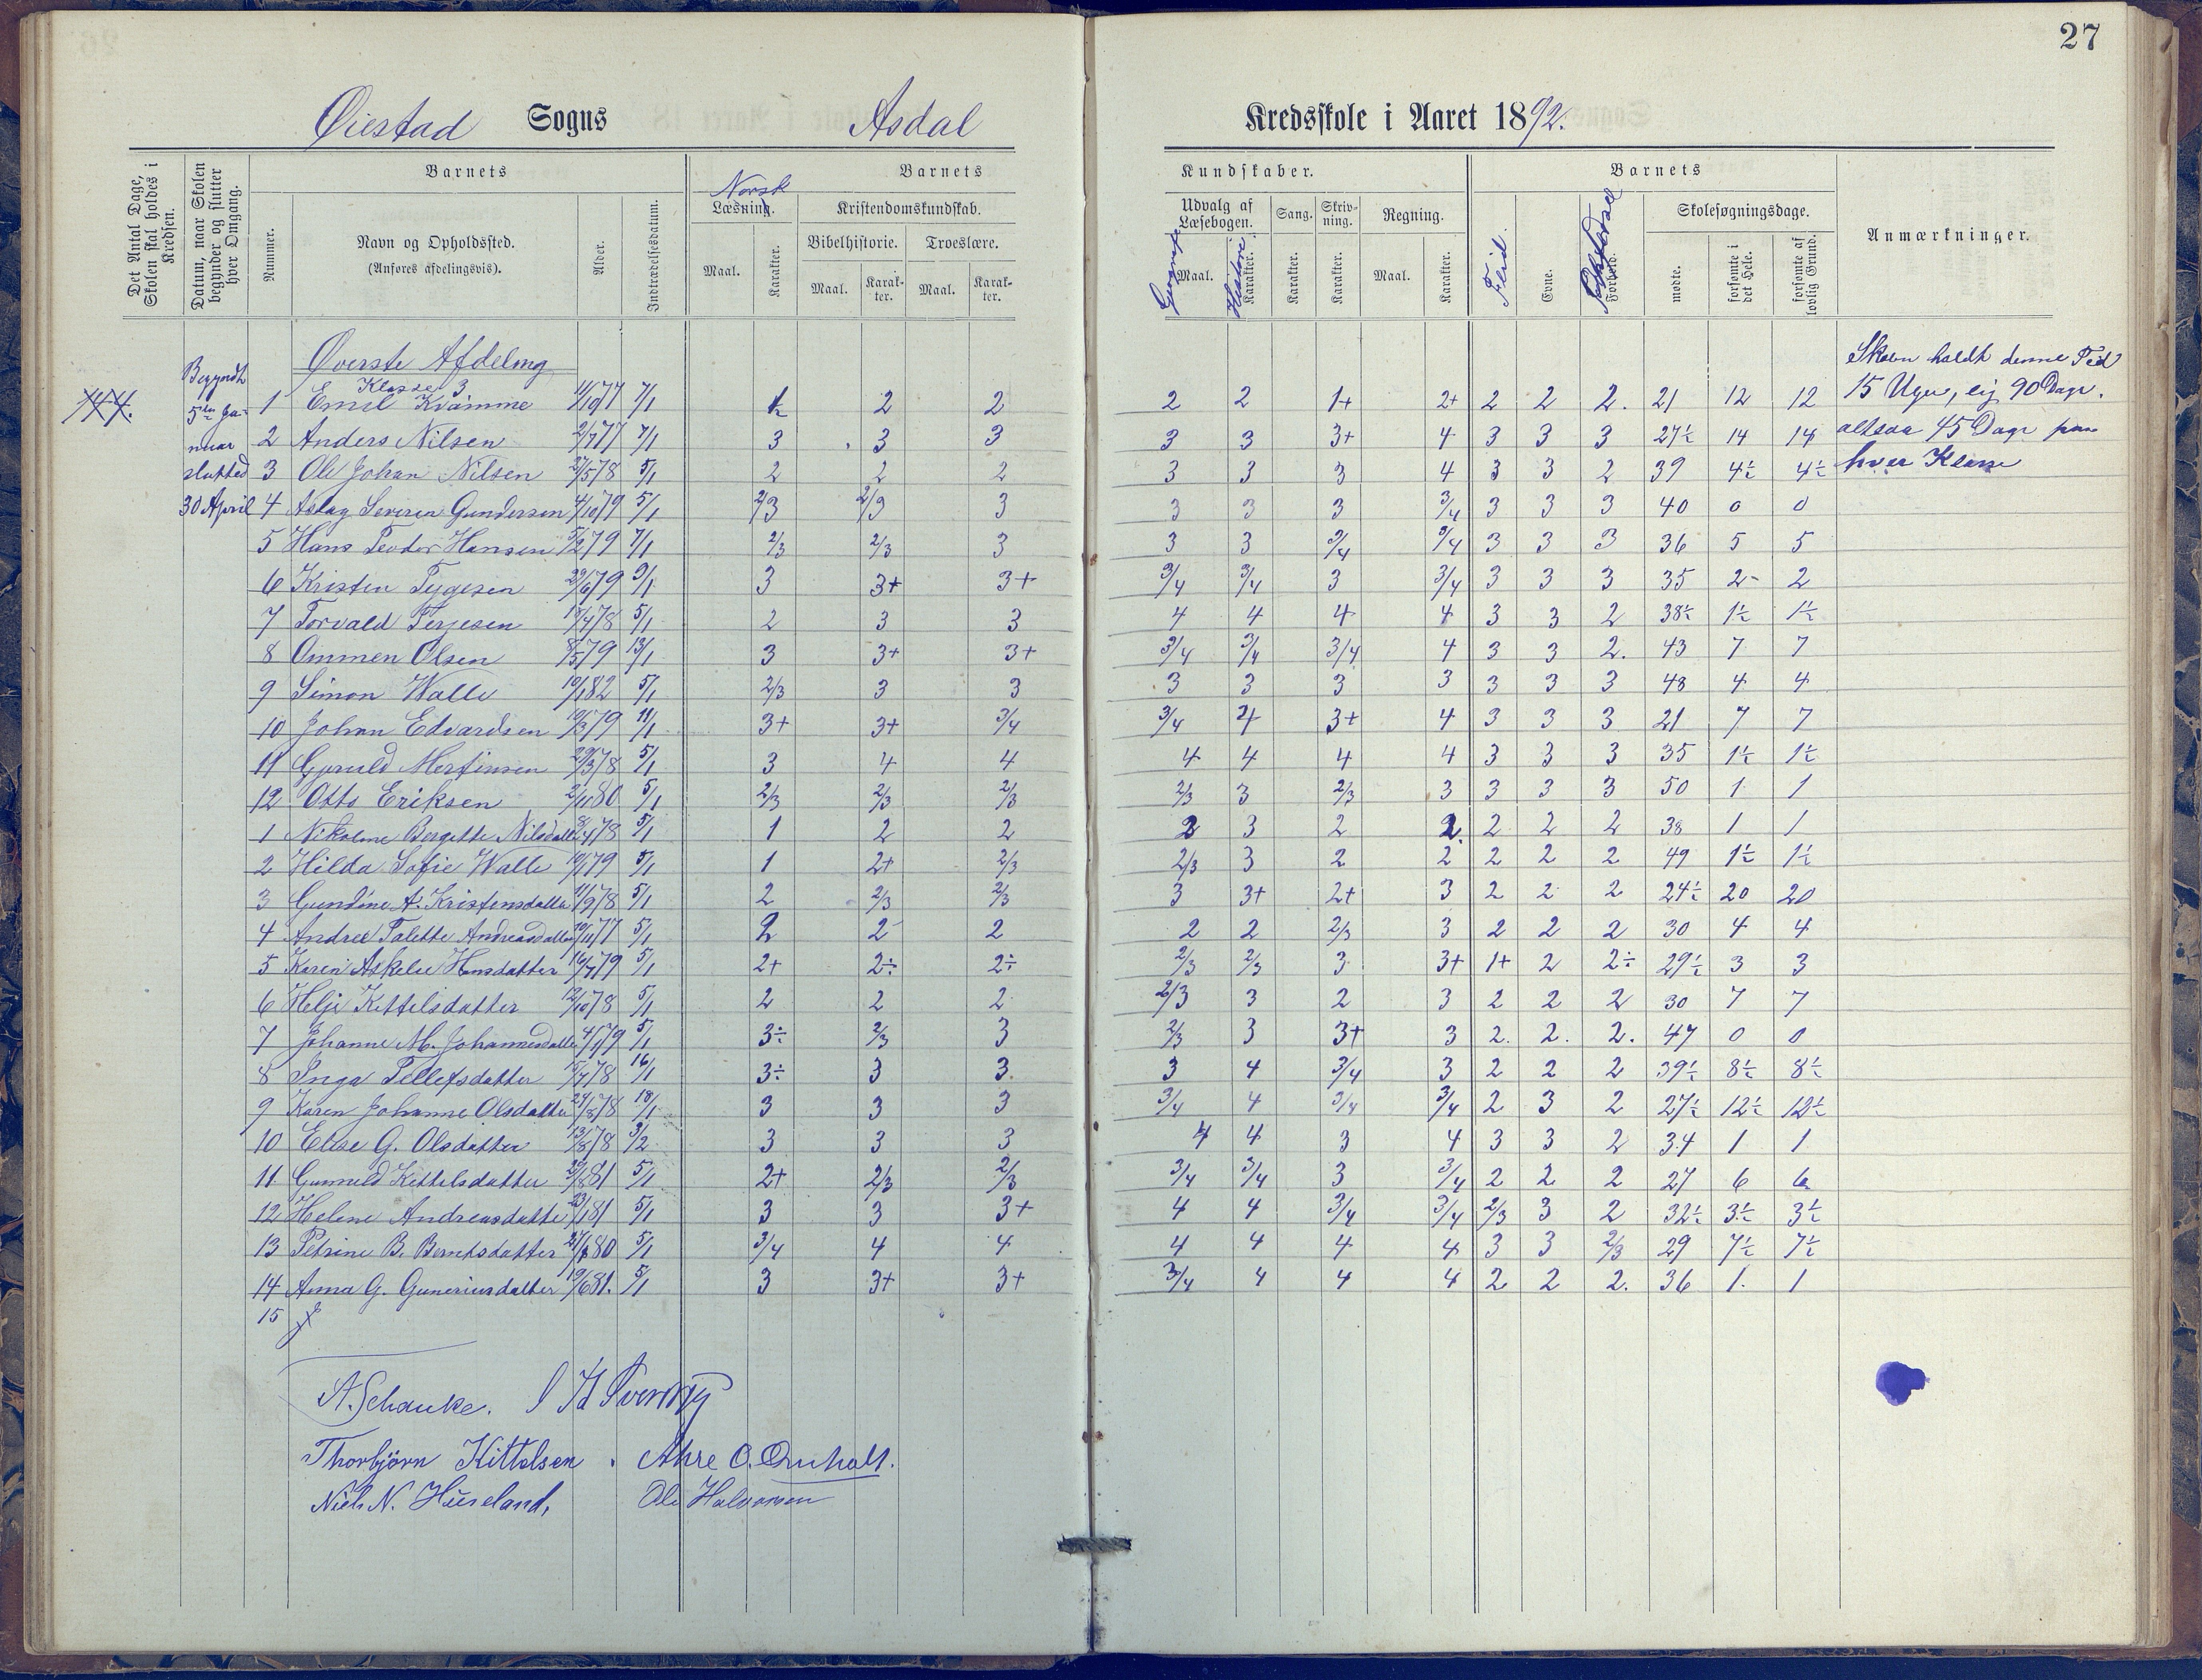 27
Øiestad Sogns Asdal Kredsskole i Aaret 1892.
Det Antal Dage, Skolen skal holdes i Kredsen.
Datum, naar Skolen begynder og slutter hver Omgang.
Barnets
Nummer.
Navn og Opholdssted.
(Anføres afdelingsvis).
Alder.
Indtrædelsesdatum.
Barnets Kundskaber.
Norsk
Læsning.
Maal. Karakter.
Kristendomskundskab.
Bibelhistorie. Troeslære.
Maal. Karakter. Maal. Karakter.
Udvalg af Læsebogen.
Maal. Karakter.
Historie
Sang. Karakter.
Skrivning. Karakter.
Regning. Maal. Karakter.
Barnets
Flid. Evne. Forhold.
Skolesøgningsdage.
mødte. forsømte i det Hele. forsømte af lovlig Grund.
Anmærkninger.
Begyndt
5te Ja-
nuar
slutted
30 April
Øverste Afdeling
Klasse 3
Skolen holdt denne Tid
15 Uger, eig 90 Dage.
altsaa 45 Dage paa
hver Klasse
1 Emil Kvamme 11/10 77 7/1 2 2 2 2 1+ 2+ 2 2 2. 21 12 12
2 Anders Nilsen 2/7 77 7/1 3 3 3 3 3 3+ 4 3 3 3 27½ 14 14
3 Ole Johan Nilsen 27/5 78 5/1 2 2 2 3 3 3 4 3 3 2 39 4½ 4½
4 Aslag Severin Gundersen 4/10 79 5/1 2/3 2/3 3 3 3 3 3/4 3 3 3 40 0 0
5 Hans Teodor Hansen 5/2 79 7/1 2/3 2/3 3 3 3 3/4 3/4 3 3 3 36 5 5
6 Kristen Tygesen 29/6 79 9/1 3 3+ 3+ 3/4 3/4 3 3/4 3 3 3 35 2 2
7 Torvald Terjesen 17/7 78 5/1 2 3 3 4 4 4 4 3 3 2 38½ 1½ 1½
8 Ommen Olsen 8/5 79 13/1 3 3+ 3+ 3/4 3/4 3/4 4 3 3 2. 43 7 7
9 Simon Walle 10/1 82 5/1 2/3 3 3 3 3 3 3 3 3 3 48 4 4
10 Johan Edvardsen 10/3 79 11/1 3+ 3+ 3/4 3/4 4 3+ 4 3 3 3 21 7 7
11 Gjeruld Mertinsen 29/3 78 5/1 3 4 4 4 4 4 4 3 3 3 35 1½ 1½
12 Otto Eriksen 2/11 80 5/1 2/3 2/3 2/3 2/3 3 2/3 3 3 3 3 50 1 1
1 Nikoline Bergitte Nilsdatter 8/4 78 5/1 1 2 2 2 3 2 2 2 2 2 38 1 1
2 Hilda Sofie Walle 10/1 79 5/1 1 2+ 2/3 2/3 3 2 2 2 2 2 49 1½ 1½
3 Gundine A. Kristensdatter 11/9 78 5/1 2 2/3 2/3 3 3+ 2+ 3 2 2 2 24½ 20 20
4 Andrea Talette Andreasdatter 10/11 77 5/1 2 2 2 2 2 2/3 3 2 2 2 30 4 4
5 Karen Askelie Hansdatter 16/7 79 5/1 2+ 2÷ 2÷ 2/3 2/3 3 3+ 1+ 2 2÷ 29½ 3 3
6 Helje Kittelsdatter 12/10 78 5/1 2 2 2 2/3 3 2 3 2 2 2 30 7 7
7 Johanne M. Johannesdatter 4/1 79 5/1 3÷ 2/3 3 2/3 3 3+ 3 2. 2. 2. 47 0 0
8 Inga Tellefsdatter 15/7 78 16/1 3÷ 3 3 3 4 3/4 3 2 2 2 39½ 8½ 8½
9 Karen Johanne Olsdatter 29/8 78 18/1 3 3 3 3/4 4 3/4 3/4 2 3 2 27½ 12½ 12½
10 Elise G. Olsdatter 13/8 78 3/2 3 3 3 4 4 3 4 3 3 2 34 1 1
11 Gunneld Kittelsdatter 29/8 81 5/1 2+ 2/3 2/3 3/4 3/4 3 3/4 2 2 2 27 6 6
12 Helene Andreasdatter 23/1 81 5/1 3 3 3+ 4 4 3/4 3/4 2/3 3 2 32½ 3½ 3½
13 Petrine B. Berntsdatter 27/8 80 5/1 3/4 4 4 4 4 4 4 3 3 2/3 29 7½ 7½
14 Anna G. Guneriusdatter 19/6 81. 5/1 3 3+ 3+ 3/4 4 4 4 2 2 2. 36 1 1
15
A. Schanke.
Thorbjörn Kittelsen. Ahre O. Ørnholt.
Niels N. Hüseland, Ole Halvorsen